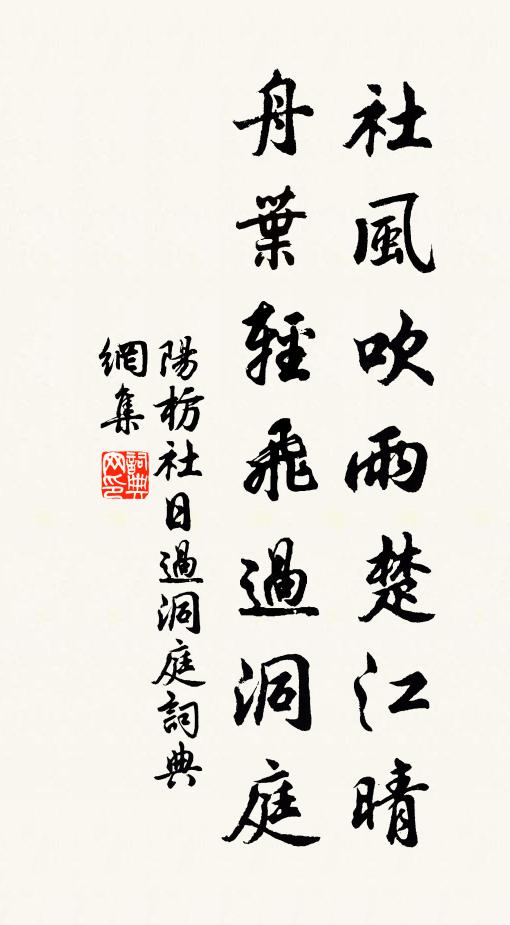 社風吹雨楚江晴
舟葉輕飛過洞庭
陽枋社日過洞庭詞典
網集
詞典网印